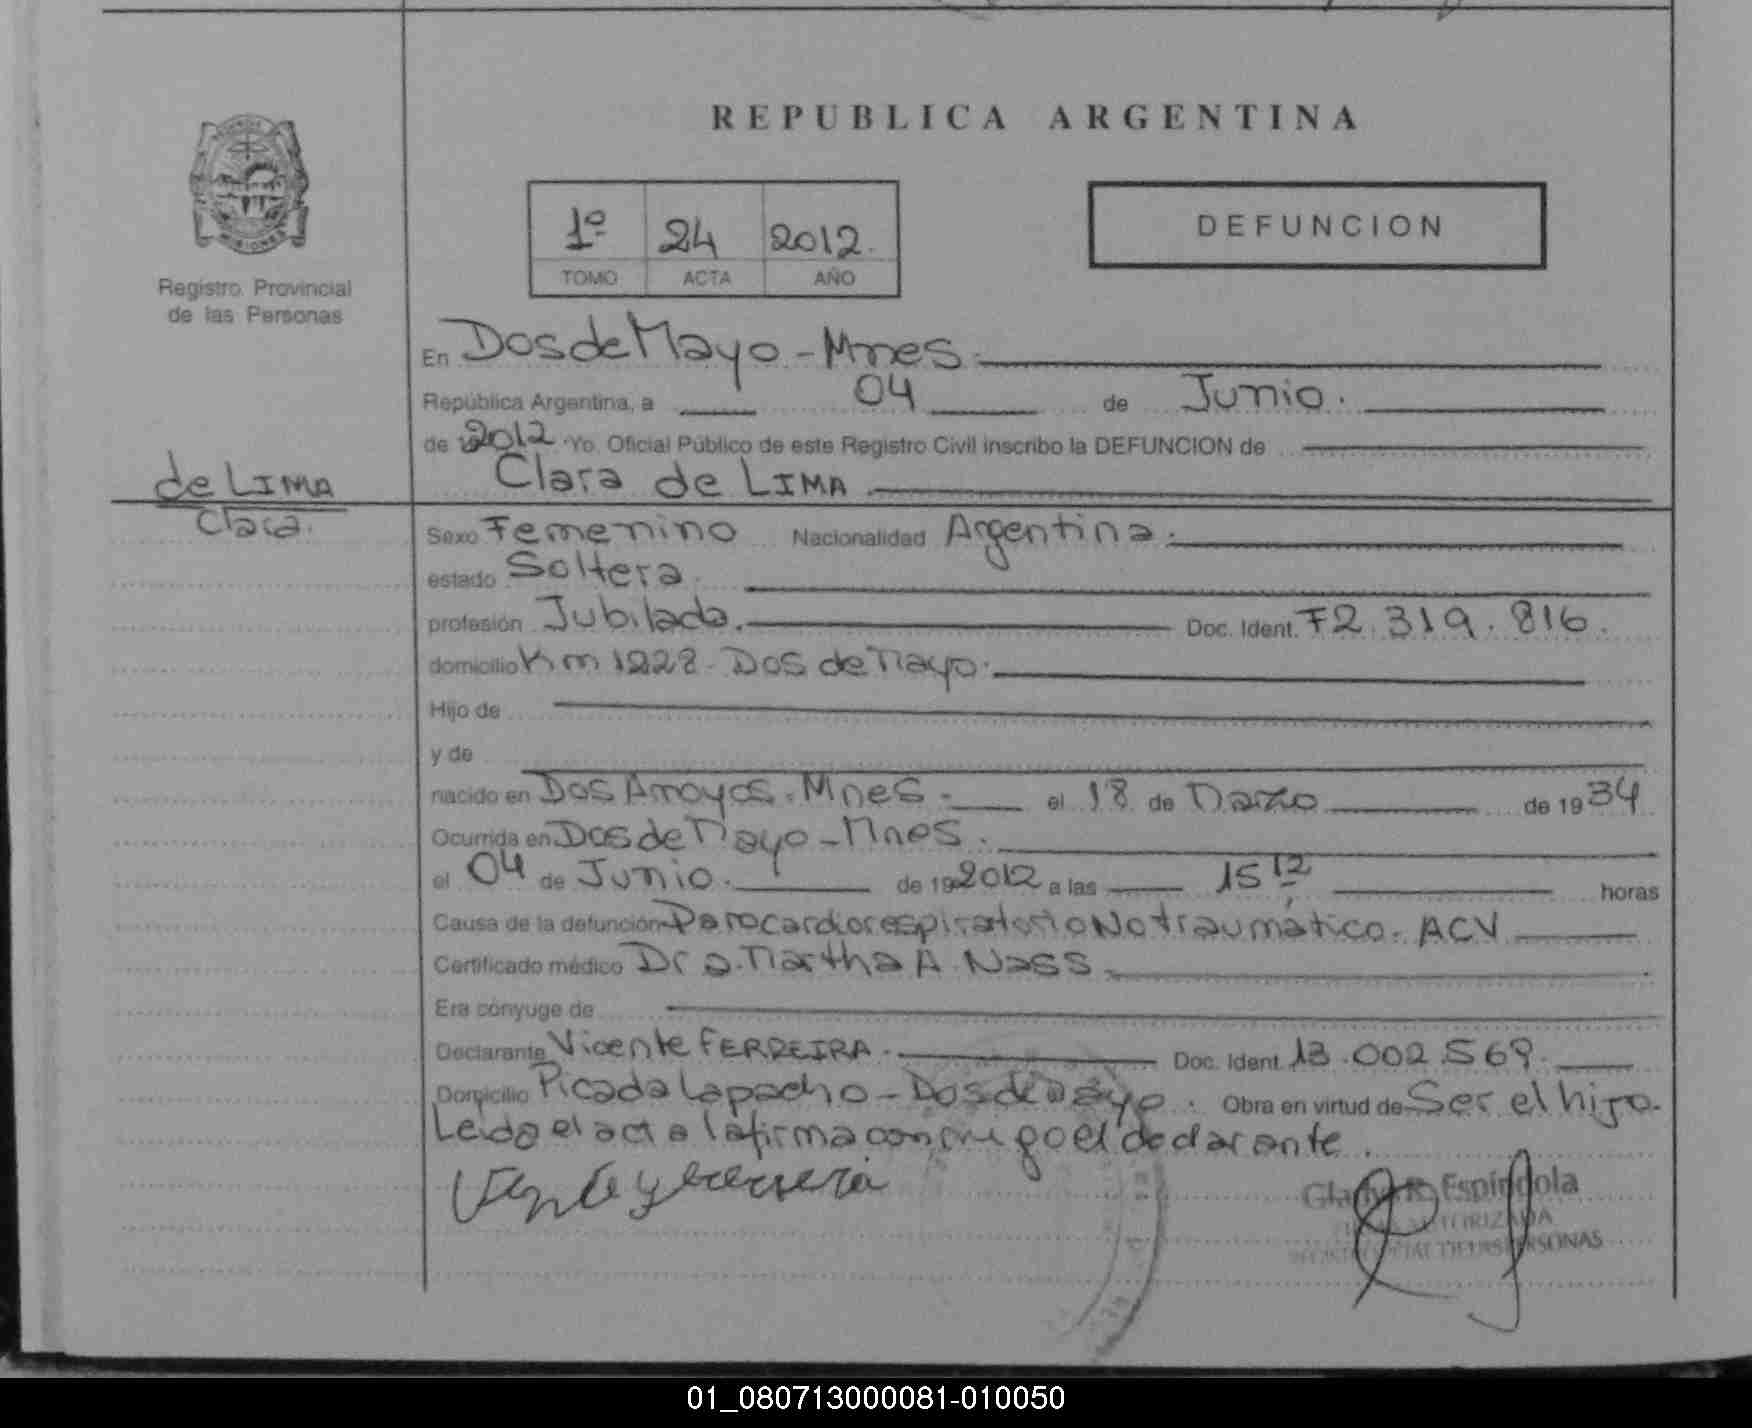 REPUBLICA ARGENTINA
MISIONES
Registro Provincial
de las Personas
1º 24 2012.
TOMO ACTA AÑO
DEFUNCION
En Dos de Mayo - Mnes.
República Argentina, a 04 de Junio.
de 2012. Yo, Oficial Público de este Registro Civil inscribo la DEFUNCION de
Clara de LIMA
de LIMA
Clara.
Sexo Femenino Nacionalidad Argentina.
estado Soltera.
profesión Jubilada. Doc. Ident. F2.319.816.
domicilio Km 1228. Dos de Mayo.
Hijo de
y de
nacido en Dos Arroyos. Mnes. el 18 de Marzo de 1934
Ocurrida en Dos de Mayo - Mnes.
el 04 de Junio. de 192012 a las 15 12 horas
Causa de la defunción Parocardiorespiratorio No traumático. ACV
Certificado médico Dra. Martha A. Nass.
Era cónyuge de
Declarante Vicente FERREIRA. Doc. Ident. 13.002.569.
Domicilio Picada Lapacho - Dos de Mayo. Obra en virtud de Ser el hijo.
Leida el acta la firma conmigo el declarante.
Espíndola
AUTORIZADA
PERSONAS
01_080713000081-010050